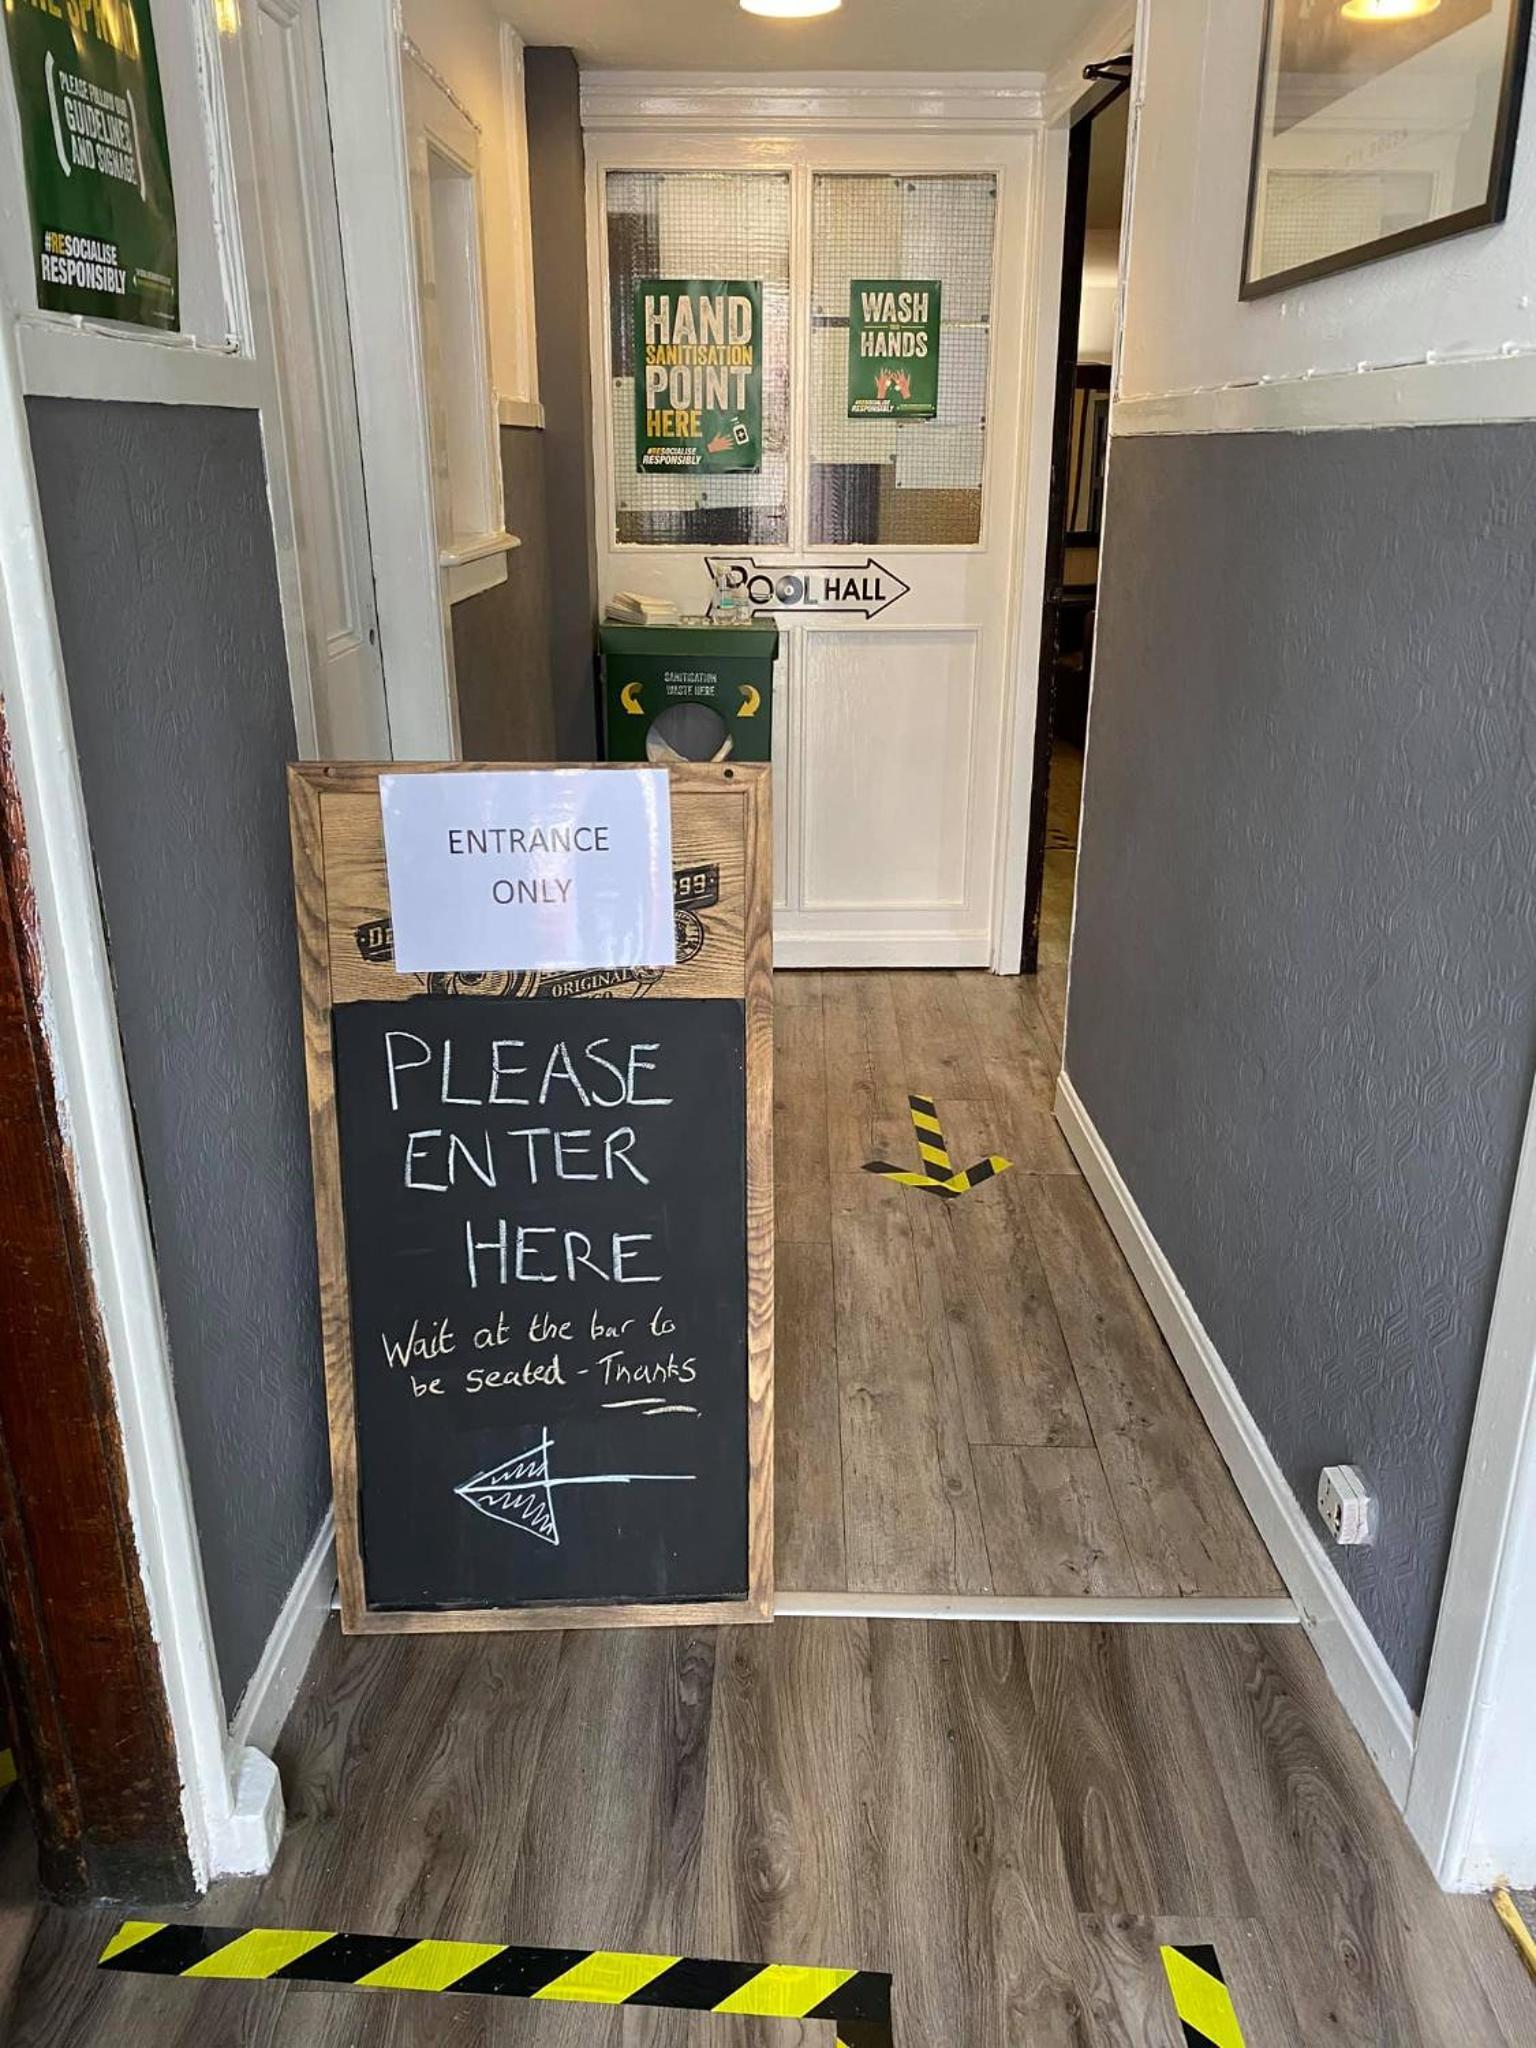 PLEASE FOLLOW OUR
GUIDELINES
AND SIGNAGE
#RESOCIALISE
RESPONSIBLY
HAND
SANITISATION
POINT
HERE
#RESOCIALISE
RESPONSIBLY
WASH
HANDS
#RESOCIALISE
RESPONSIBLY
POOL HALL
SANITISATION
WASTE HERE
ENTRANCE
ONLY
ORIGINAL
PLEASE
ENTER
HERE
Wait at the bar to
be seated - Thanks